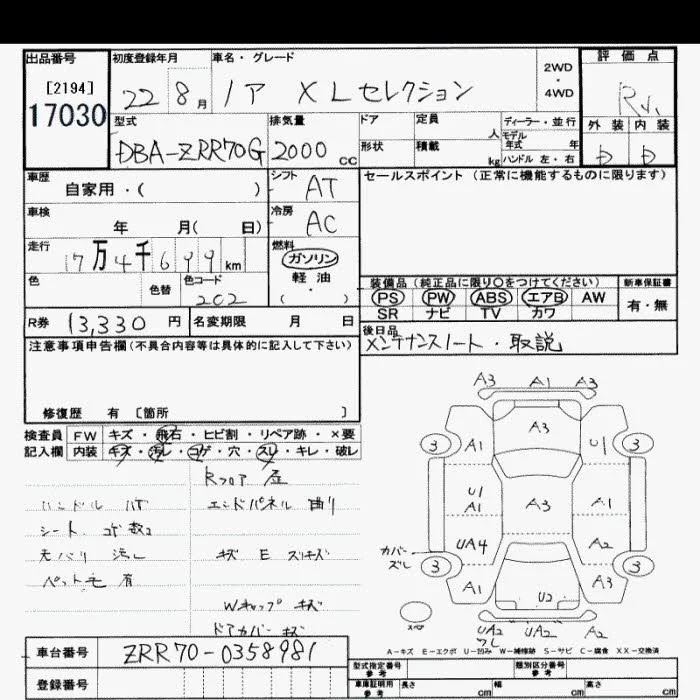 出品番号
[2194]
17030
初度登録年月
22 8月
車名・グレード
ノア XLセレクション
2WD
・
4WD
評価点
外装 内装
D D
型式
DBA-ZRR70G
排気量
2000 CC
ドア
形状
定員
人
積載
kg
ディーラー・並行
モデル
年式 年
ハンドル 左・右
車歴
自家用・( )
シフト
AT
セールスポイント(正常に機能するものに限ります)
車検
年 月( 日)
冷房
AC
走行
17万4千699km
燃料
ガソリン
軽油
・
( )
色
色替
色コード
202
装備品(純正品に限り○をつけてください)
新車保証書
PS PW ABS エアB AW
有・無
SR ナビ TV カワ
R券 13,330円
名変期限 月 日
後日品
メンテナンスノート・取説
注意事項申告欄(不具合内容等は具体的に記入して下さい)
修復歴 有 [箇所 ]
検査員
記入欄
FW キズ・飛石・ヒビ割・リペア跡・×要
内装 キズ・汚レ・コゲ・穴・スレ・キレ・破レ
Rフロア 歪
ハンドル
エンドパネル 曲り
シート コゲ数コ
汚レ
キズ E スリキズ
ペット毛 有
Wキャップ キズ
ドアカバー キズ
A3 A1 A3
A3
3 A1 U1 3
U1
A1 A3 A1
カバー
ズレ
UA4 A2
3 3
A1 A3
U2
スペア
UA2 UA2 A2
ワレ
A-キズ E-エクボ U-凹み W-補修跡 S-サビ C-腐食 XX-交換済
車台番号
ZRR70-0358981
登録番号
型式指定番号
参考
類別区分番号
参考
車庫証明用
参考
長さ cm
幅 cm
高さ cm